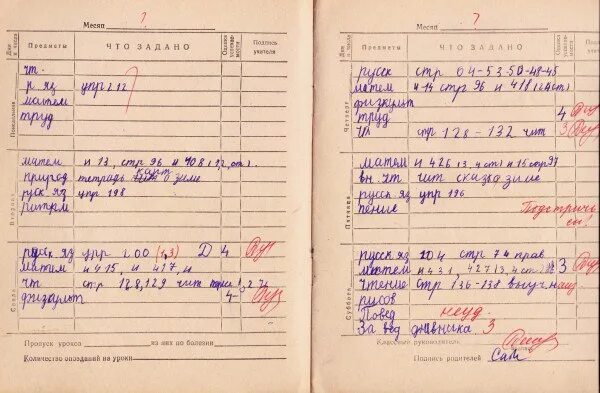 Месяц ?
Дни и числа Предметы ЧТО ЗАДАНО Оценка успеваемости Подпись учителя
Понедельник
чт.
р яз упр 212
матем
труд
Вторник
матем н 13, стр 96 и 408 (1,2, ст).
природ тетрадь карт о зиме
руск яз упр 198
ритм
Среда
русск яз упр 200 (1,3) Д 4
матим н 415, и 427, и
чт стр 128, 129 чит
физкульт 4-
Пропуск уроков из них по болезни
Количество опозданий на уроки
Месяц ?
Дни и числа Предметы ЧТО ЗАДАНО Оценка успеваемости Подпись учителя
Четверг
русск стр 04-53-50-48-45
матем н-14 стр 96 и 418
физкульт
труд 4
чт стр 128-132 чит 3
Пятница
матем н 426 (3, 4 ст) н 15 стр 97
вн. чт чит сказ о зиме
русск яз упр 196
пение Подстричь
ся!
Суббота
русск яз 204 стр 74 прав
матем н 431, 427 (3, 4 ст) 3
чтение стр 136-138 выуч наиз
рисов
Повед неуд.
За вед дневника 3
Классный руководитель
Подпись родителей